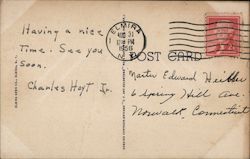 ELMIRA
AUG 31
PM
1956
N.Y.
POST CARD
Having a nice
time. See you
soon.
Charles Hoyt Jr.
Master Edward
6 Hill Ave.
Norwalk, Connecticut